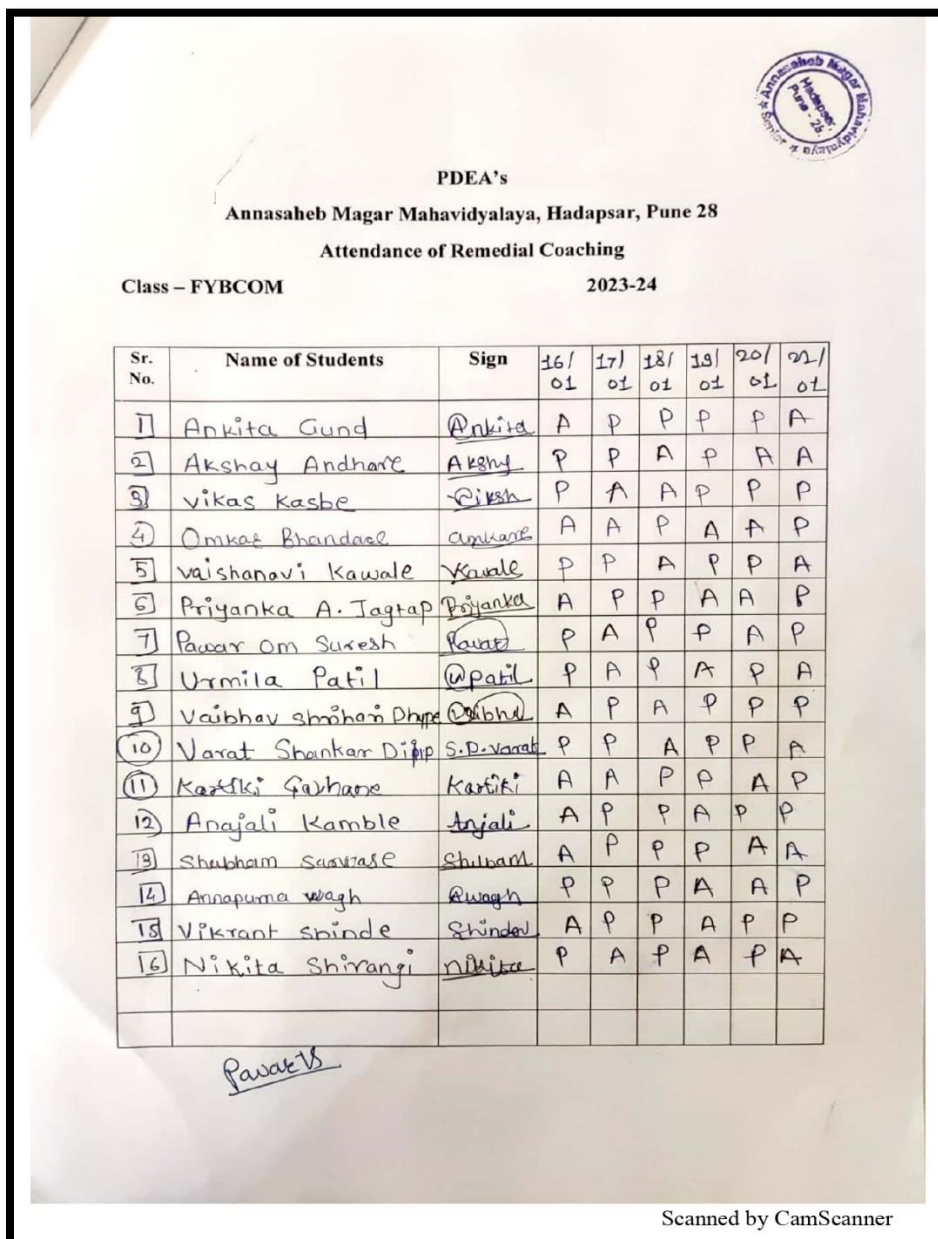 Annasaheb Magar Mahavidyalaya
Hadapsar,
Pune - 28.
Senior
PDEA's
Annasaheb Magar Mahavidyalaya, Hadapsar, Pune 28
Attendance of Remedial Coaching
Class – FYBCOM 2023-24
Sr. No. Name of Students Sign 16/01 17/01 18/01 19/01 20/01 21/01
1 Ankita Gund Ankita A P P P P A
2 Akshay Andhare Akshy P P A P A A
3 Vikas Kasbe P A A P P P
4 Omkar Bhandare A A P A A P
5 Vaishanavi Kawale Kavale P P A P P A
6 Priyanka A. Jagtap Priyanka A P P A A P
7 Pawar Om Suresh Pavar P A P P A P
8 Urmila Patil U Patil P A P A P A
9 Vaibhav Shrihari A P A P P P
10 Varat Shankar Dilip S.D. Varat P P A P P A
11 Kartiki Gavhane Kartiki A A P P A P
12 Anajali Kamble Anjali A P P A P P
13 Shubham A P P P A A
14 Annapurna Wagh Awagh P P P A A P
15 Vikrant Shinde A P P A P P
16 Nikita Shirangi Nikita P A P A P A
Pavar VS
Scanned by CamScanner